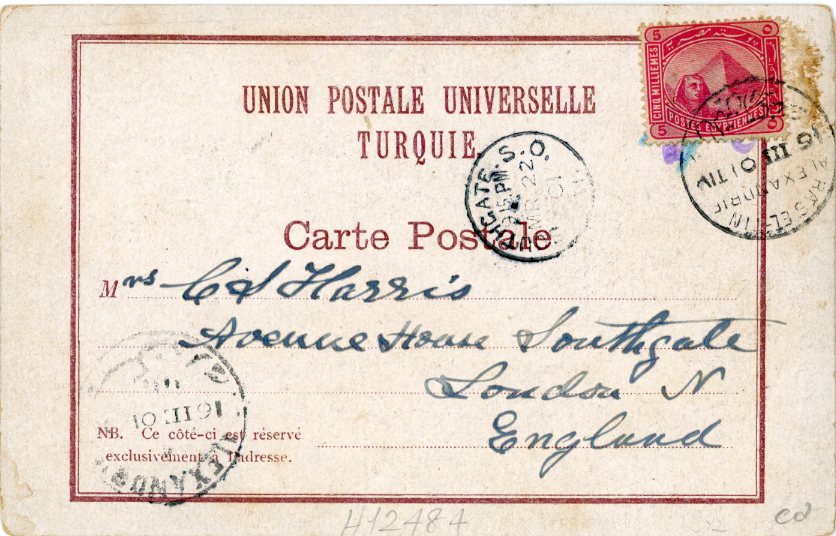 UNION POSTALE UNIVERSELLE
TURQUIE
5 5
CINQ MILLIEMES
POSTES EGYPTIENNES
5
RAS EL-TIN
ALEXANDRIE
16 III 01 TIV
SOUTHGATE. S.O. N.
MR 22
01
Carte Postale
Mrs C S Harris
Avenue House Southgate
London N
England
ALEXANDR
16 III 01
NB. Ce côté-ci est réservé
exclusivement à l'adresse.
H12484